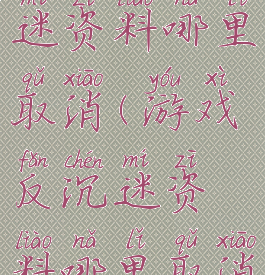 mí zī liào nǎ lǐ
迷资料哪里
qǔ xiāo yóu xì
取消(游戏
fǎn chén mí zī
反沉迷资
liào nǎ lǐ qǔ xiāo
料哪里取消